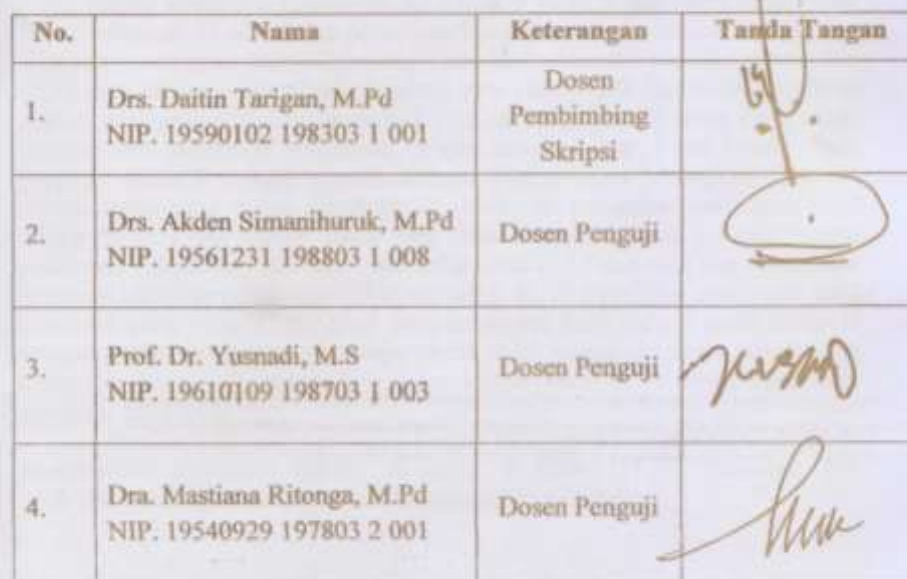 No. Nama Keterangan Tanda Tangan
1. Drs. Daitin Tarigan, M.Pd
NIP. 19590102 198303 1 001
Dosen
Pembimbing
Skripsi
2. Drs. Akden Simanihuruk, M.Pd
NIP. 19561231 198803 1 008
Dosen Penguji
3. Prof. Dr. Yusnadi, M.S
NIP. 19610109 198703 1 003
Dosen Penguji
4. Dra. Mastiana Ritonga, M.Pd
NIP. 19540929 197803 2 001
Dosen Penguji